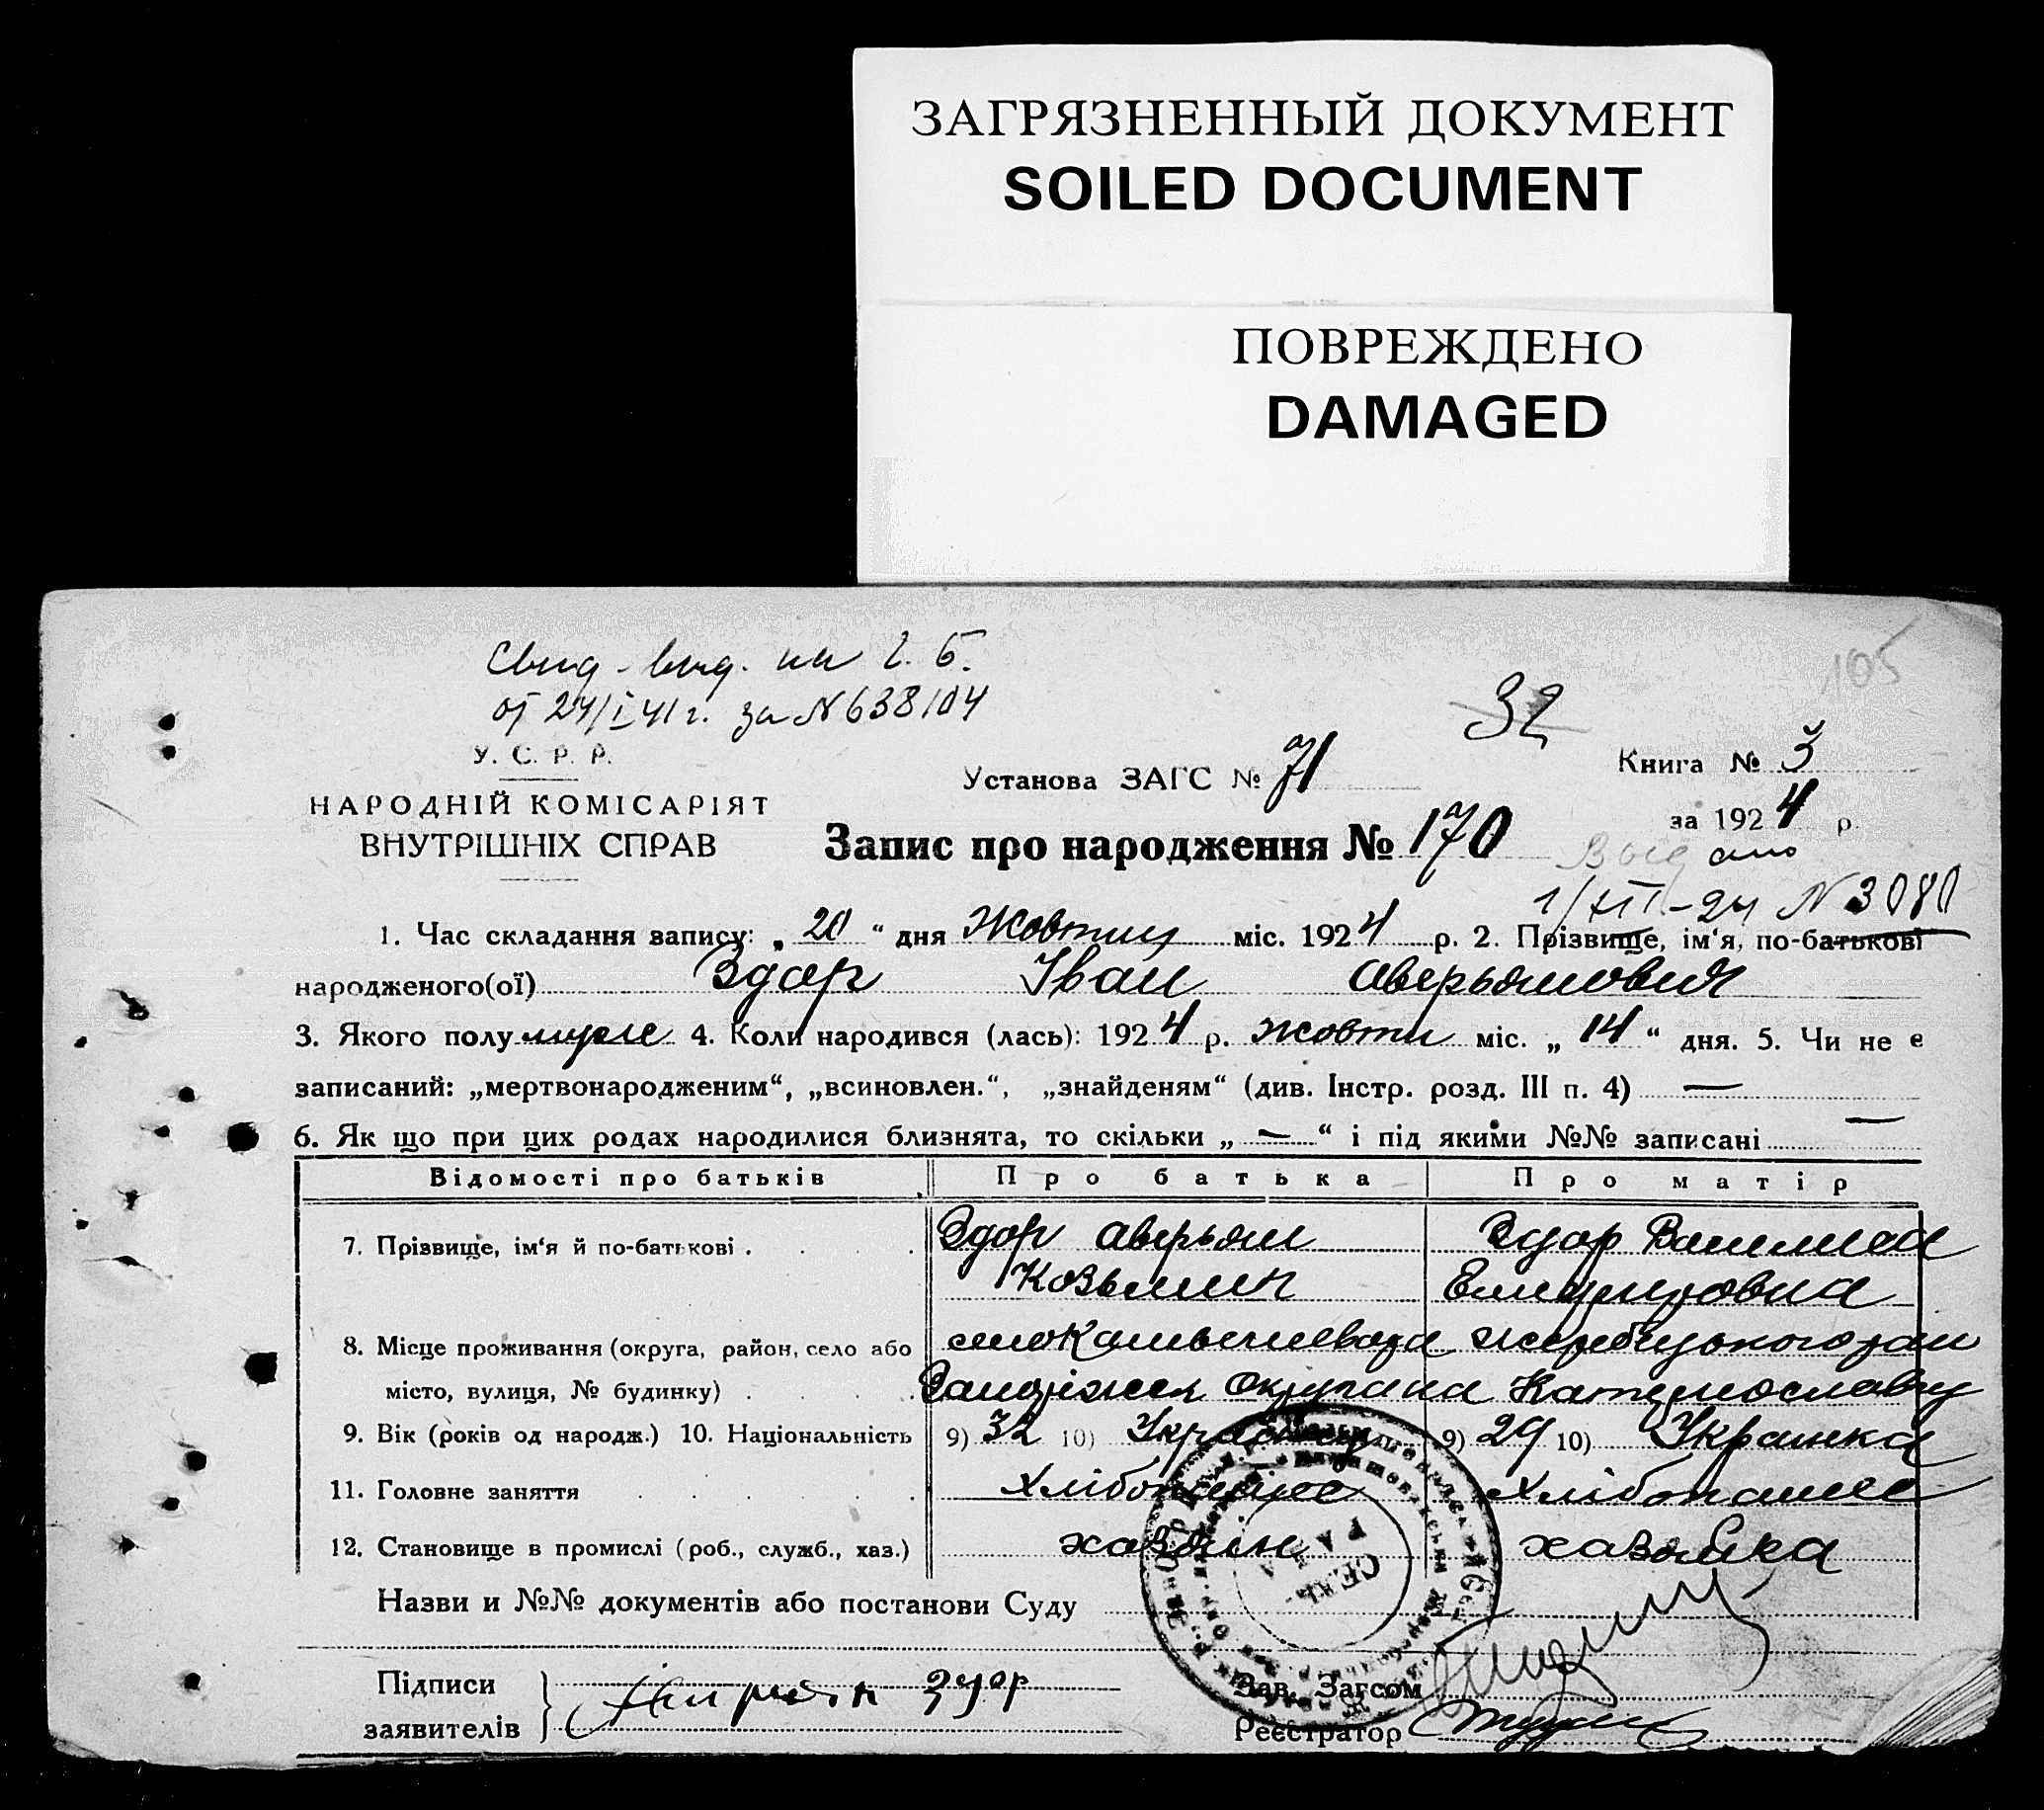 ЗАГРЯЗНЕННЫЙ ДОКУМЕНТ
SOILED DOCUMENT
ПОВРЕЖДЕНО
DAMAGED
105
от 24/I 41 г. за N 638104
32
У. С. Р. Р.
НАРОДНІЙ КОМІСАРІЯТ
ВНУТРІШНІХ СПРАВ
Установа ЗАГС № 71
Книга № 3
за 1924 р.
Запис про народження № 170
Выдано
1/XII-24 N 3080
1. Час складання запису: „20“ дня Жовтня міс. 1924 р. 2. Прізвище, ім‘я, по-батькові
народженого(ої) Здор Іван Аверьянович
3. Якого полу муже 4. Коли народився (лась): 1924 р. жовтн міс. „14“ дня. 5. Чи не є
записаний: „мертвонародженим“, „всиновлен.“, „знайденям“ (див. Інстр. розд. III п. 4) —
6. Як що при цих родах народилися близнята, то скільки „—“ і під якими №№ записані —
Відомості про батьків Про батька Про матір
7. Прізвище, ім‘я й по-батькові . . . . Здор Аверьян Здор
Козьмич
8. Місце проживання (округа, район, село або село
місто, вулиця, № будинку) . . . .
9. Вік (років од народж.) 10. Національність 9) 32 10) 9) 29 10) Українка
11. Головне заняття . . . . . Хлібопашес Хлібопашес
12. Становище в промислі (роб., служб., хаз.) хазяин хазяйка
Назви и №№ документів або постанови Суду
СЕЛЬ
РАДА
Підписи
заявителів Здор
Зав. Загсом
Реєстратор